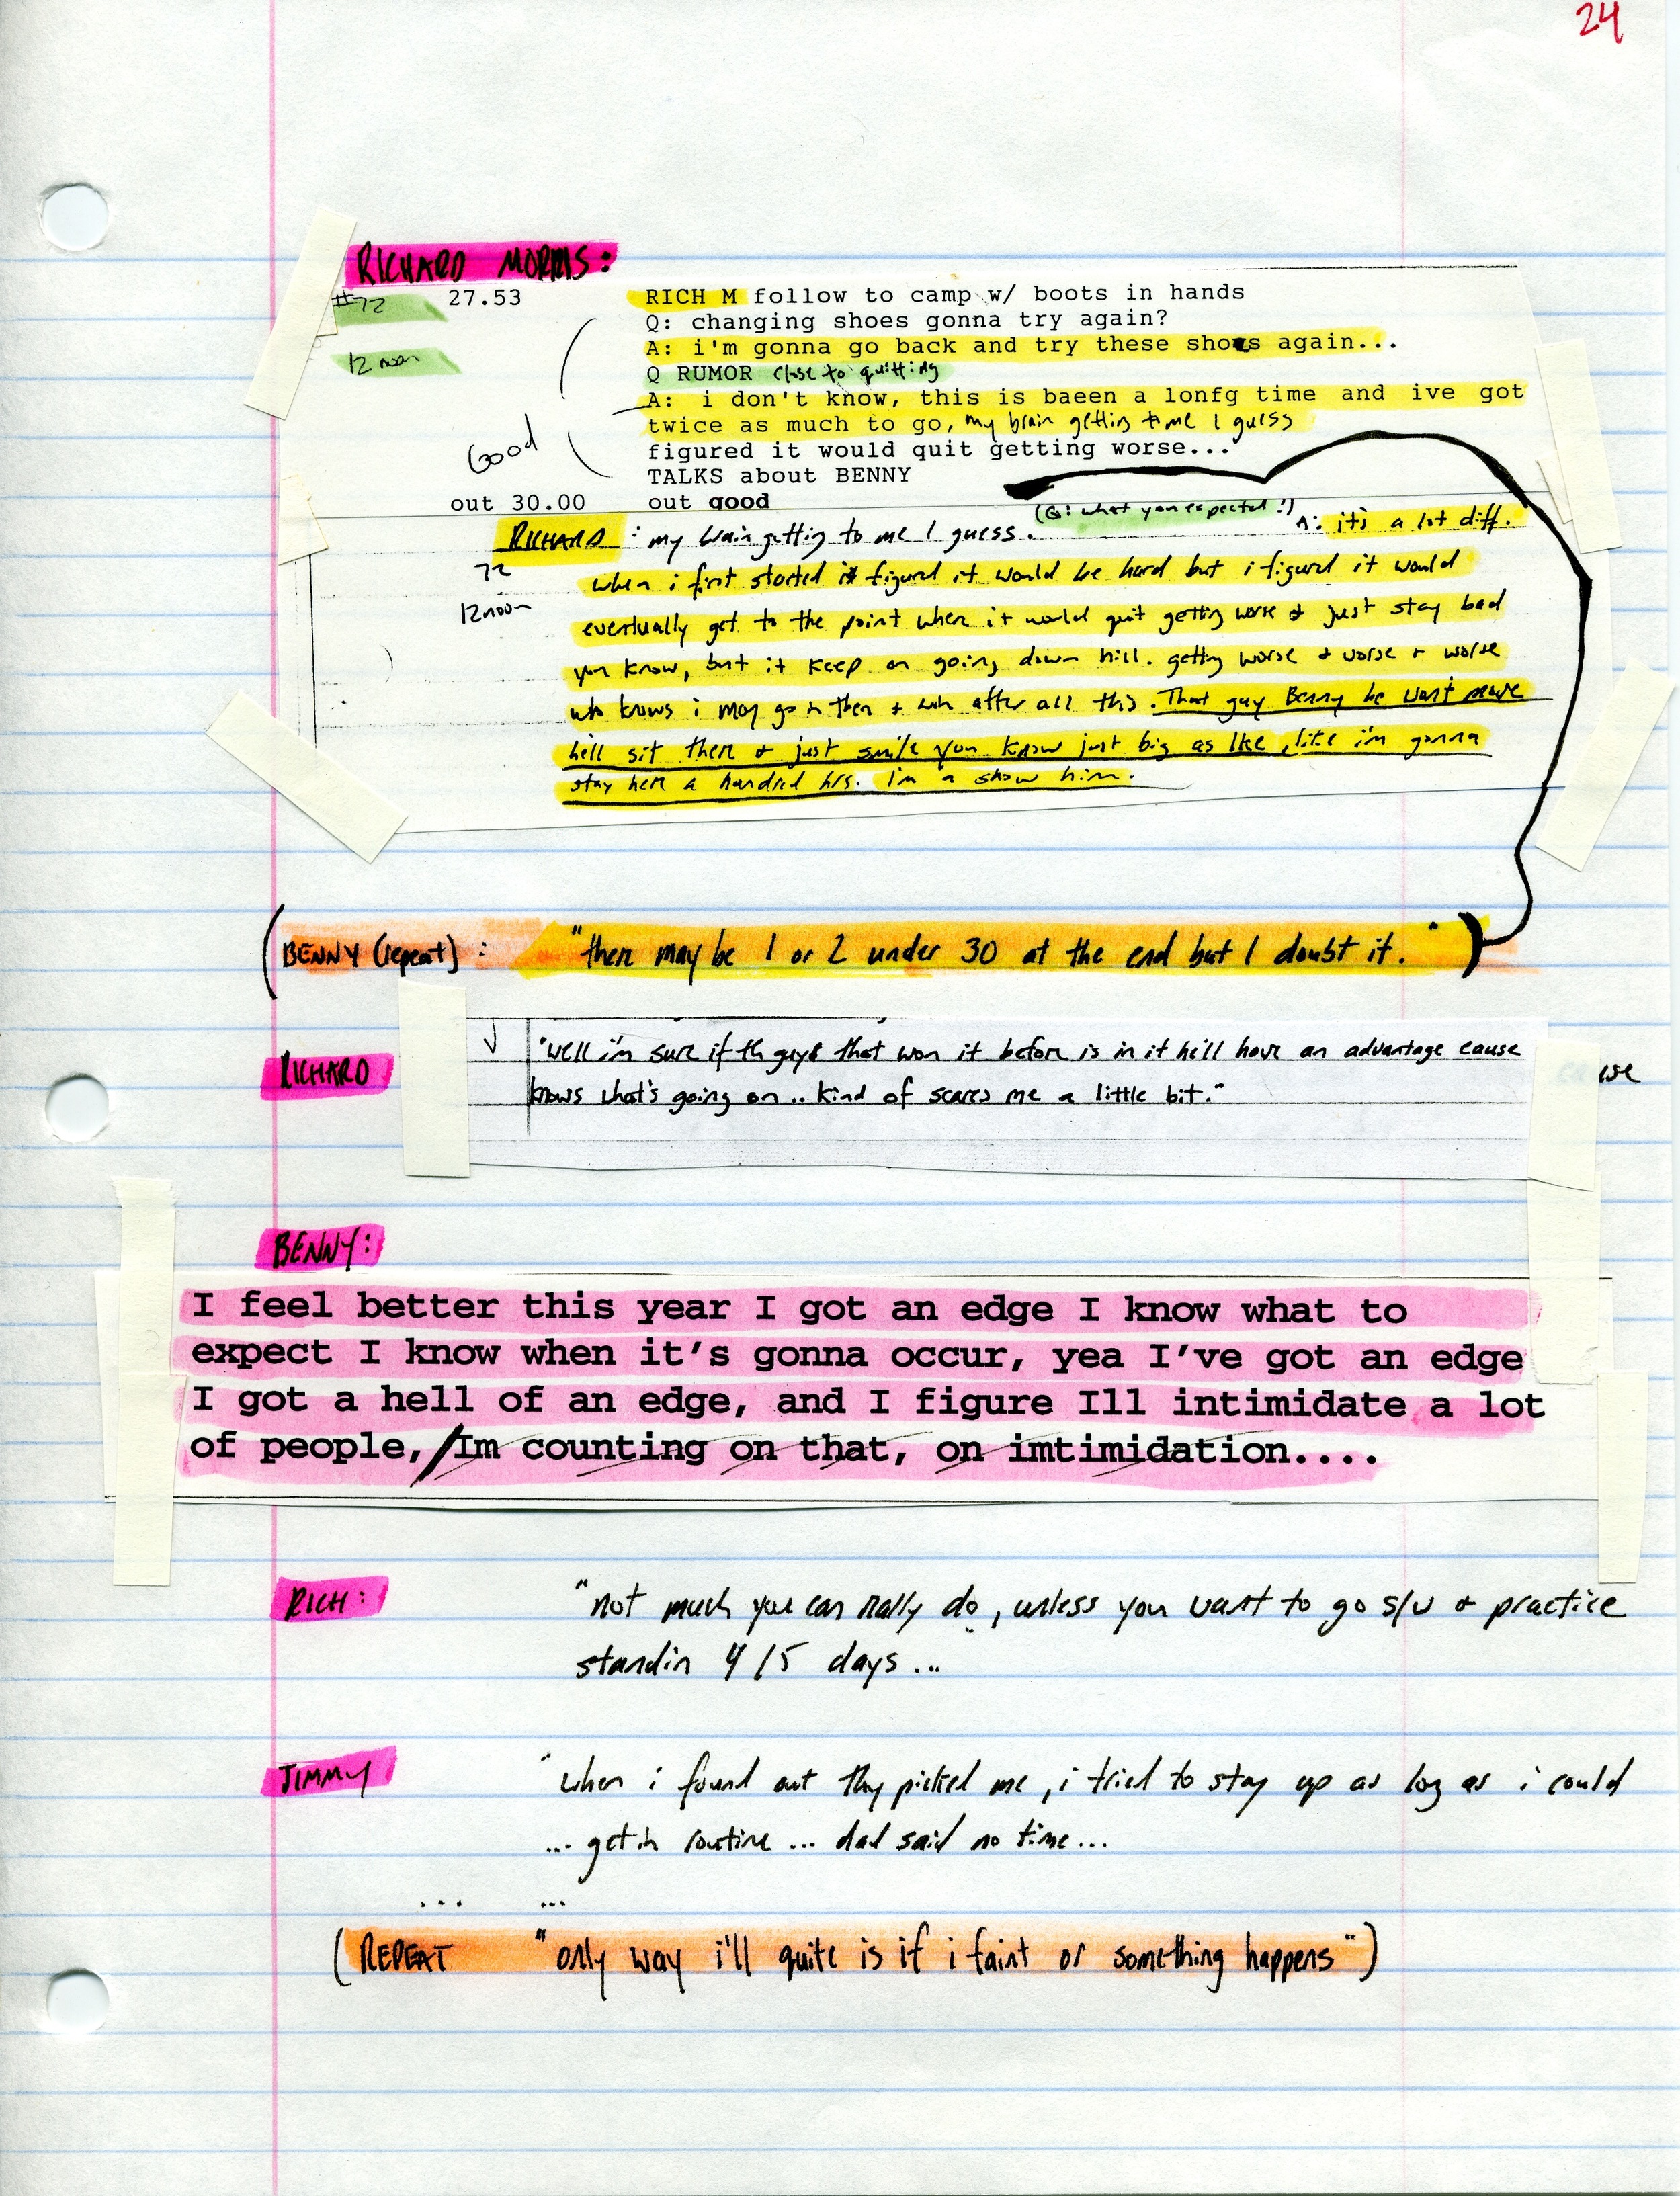 24
RICHARD MORRIS:
#72 27.53 RICH M follow to camp w/ boots in hands
Q: changing shoes gonna try again?
A: i'm gonna go back and try these shoes again...
12 noon Q RUMOR close to quitting
A: i don't know, this is baeen a lonfg time and ive got
twice as much to go, my brain getting to me I guess
Good figured it would quit getting worse...
TALKS about BENNY
out 30.00 out good
(Q: what you expected?) A: it's a lot diff.
RICHARD : my brain getting to me I guess.
72 when i first started i figured it would be hard but i figured it would
12 noon eventually get to the point when it would quit getting worse & just stay bad
you know, but it keep on going down hill. getting worse & worse & worse
who knows i may go in there & win after all this. That guy Benny he won't move
he'll sit there & just smile you know just big as like, like i'm gonna
stay here a hundred hrs. I'm a show him.
(BENNY (repeat) : "there may be 1 or 2 under 30 at the end but I doubt it. ")
RICHARD "well i'm sure if th guys that won it before is in it he'll have an advantage cause
knows what's going on .. kind of scares me a little bit."
BENNY:
I feel better this year I got an edge I know what to
expect I know when it's gonna occur, yea I've got an edge
I got a hell of an edge, and I figure Ill intimidate a lot
of people, Im counting on that, on imtimidation....
RICH: "not much you can really do, unless you want to go s/w & practice
standin 4/5 days ...
JIMMY "when i found out they picked me, i tried to stay up as long as i could
... get in routine ... dad said no time ...
... ...
(REPEAT "only way i'll quite is if i faint or something happens")